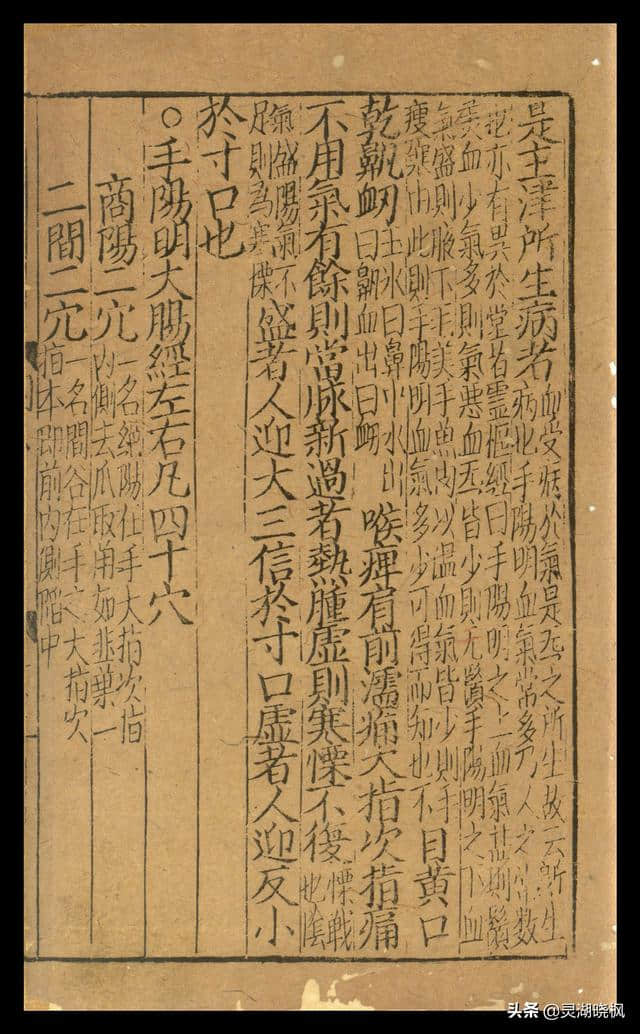 是主津所生病者血受病於氣是炁之所生故云所生
病也手陽明血氣常多乃人之常數
也亦有異於常者靈樞經曰手陽明之上血氣盛則鬚
美血少氣多則氣惡血炁皆少則无鬚手陽明之下血
氣盛則腋下毛美手魚肉以溫血氣皆少則手
瘦寒由此則手陽明血氣多少可得而知也不目黃口
乾鼽衂王氷曰鼻中水出
曰鼽血出曰衂喉痺肩前臑痛大指次指痛
不用氣有餘則當脉新過者熱腫虛則寒慄不復慄戰
也陰
氣盛陽氣不
足則為寒慄盛者人迎大三信於寸口虛者人迎反小
於寸口也
○手陽明大腸經左右凡四十穴
商陽二穴一名絕陽在手大指次指
內側去爪甲角如韭葉一
二間二穴一名間谷在手之大指次
指本節前內側陷中
头条 @灵湖晓枫